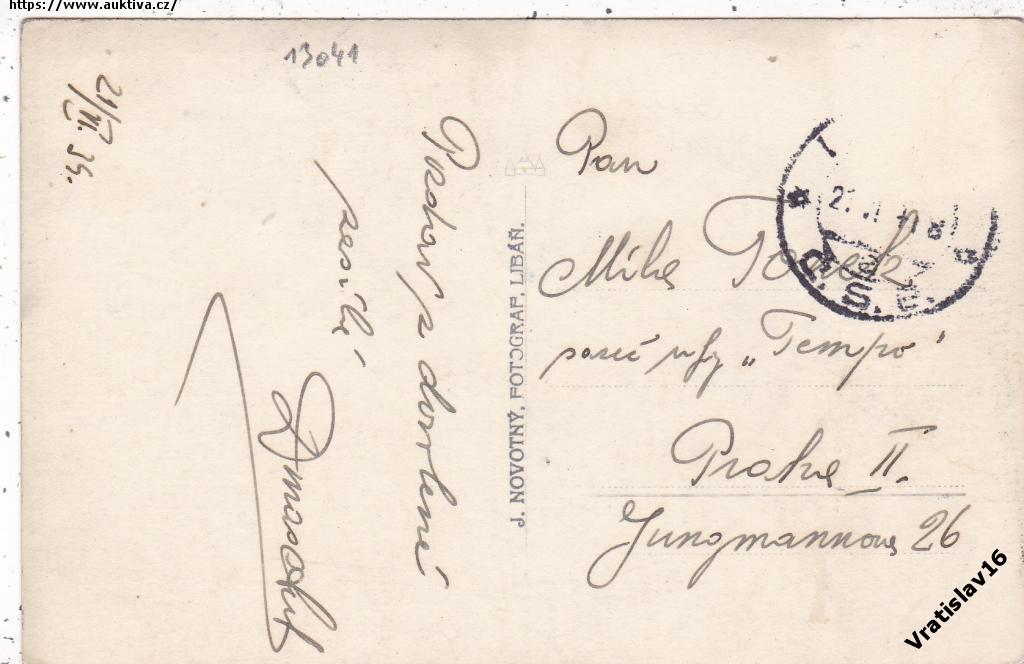 https://www.auktiva.cz/
13041
21/VI.34.
Pozdrav z dovolené
zasílá
J. NOVOTNÝ, FOTOGRAF, LIBÁŇ.
Pan
Míla
"Tempo"
Praha II.
Jungmannova 26
Č.S.P.
Vratislav16